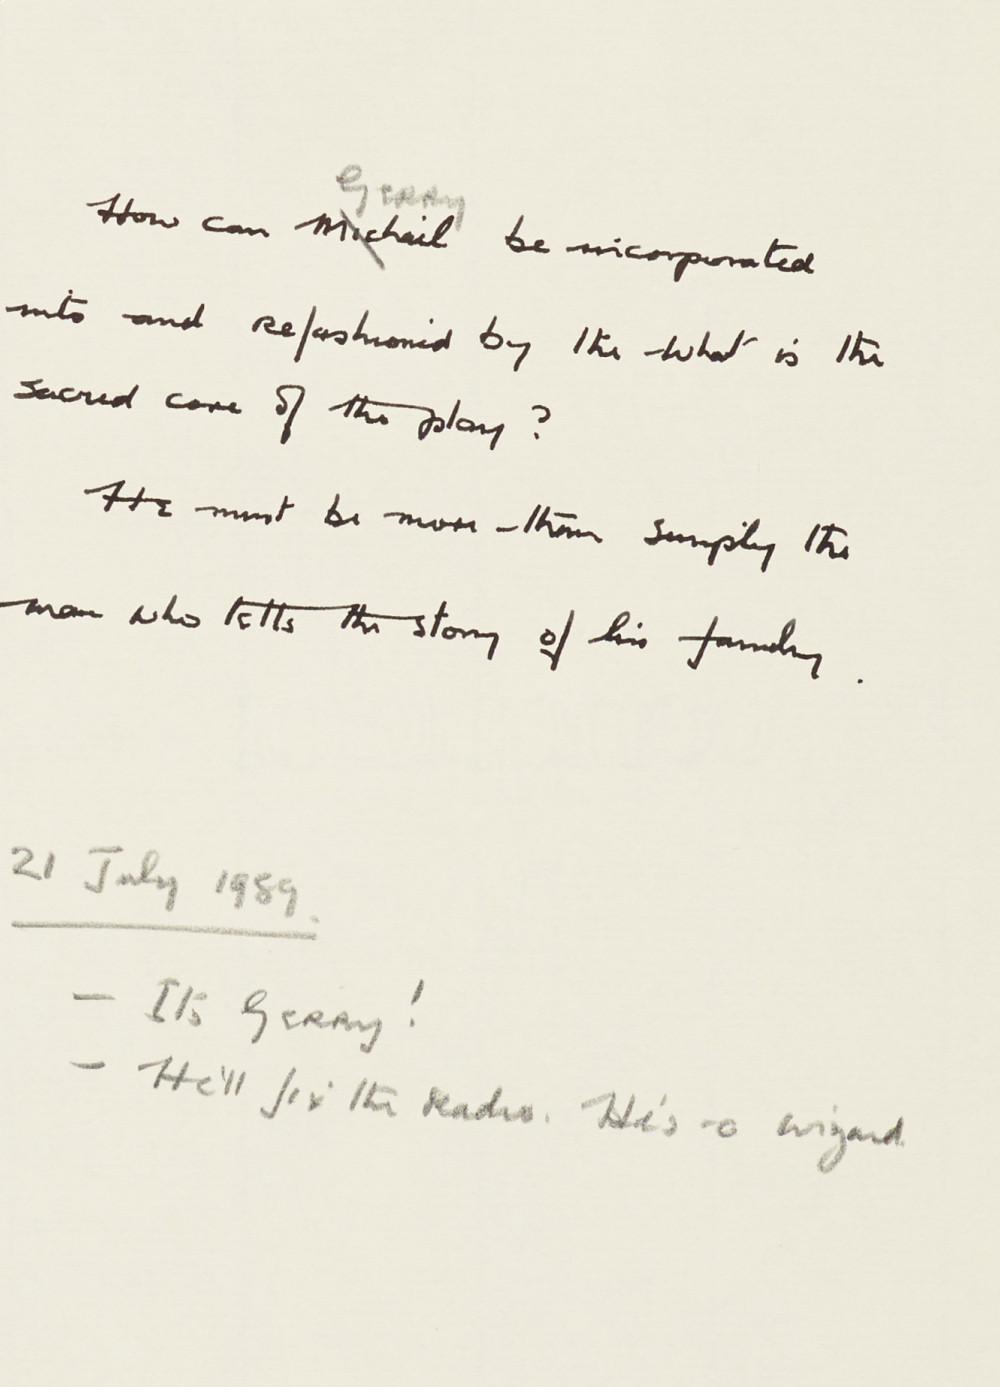 Gerry
How can Michael be incorporated
into and refashioned by the what is the
sacred core of the play?
He must be more than simply the
man who tells the story of his family.
21 July 1989.
– Its Gerry!
– He'll fix the radio. He's a wizard